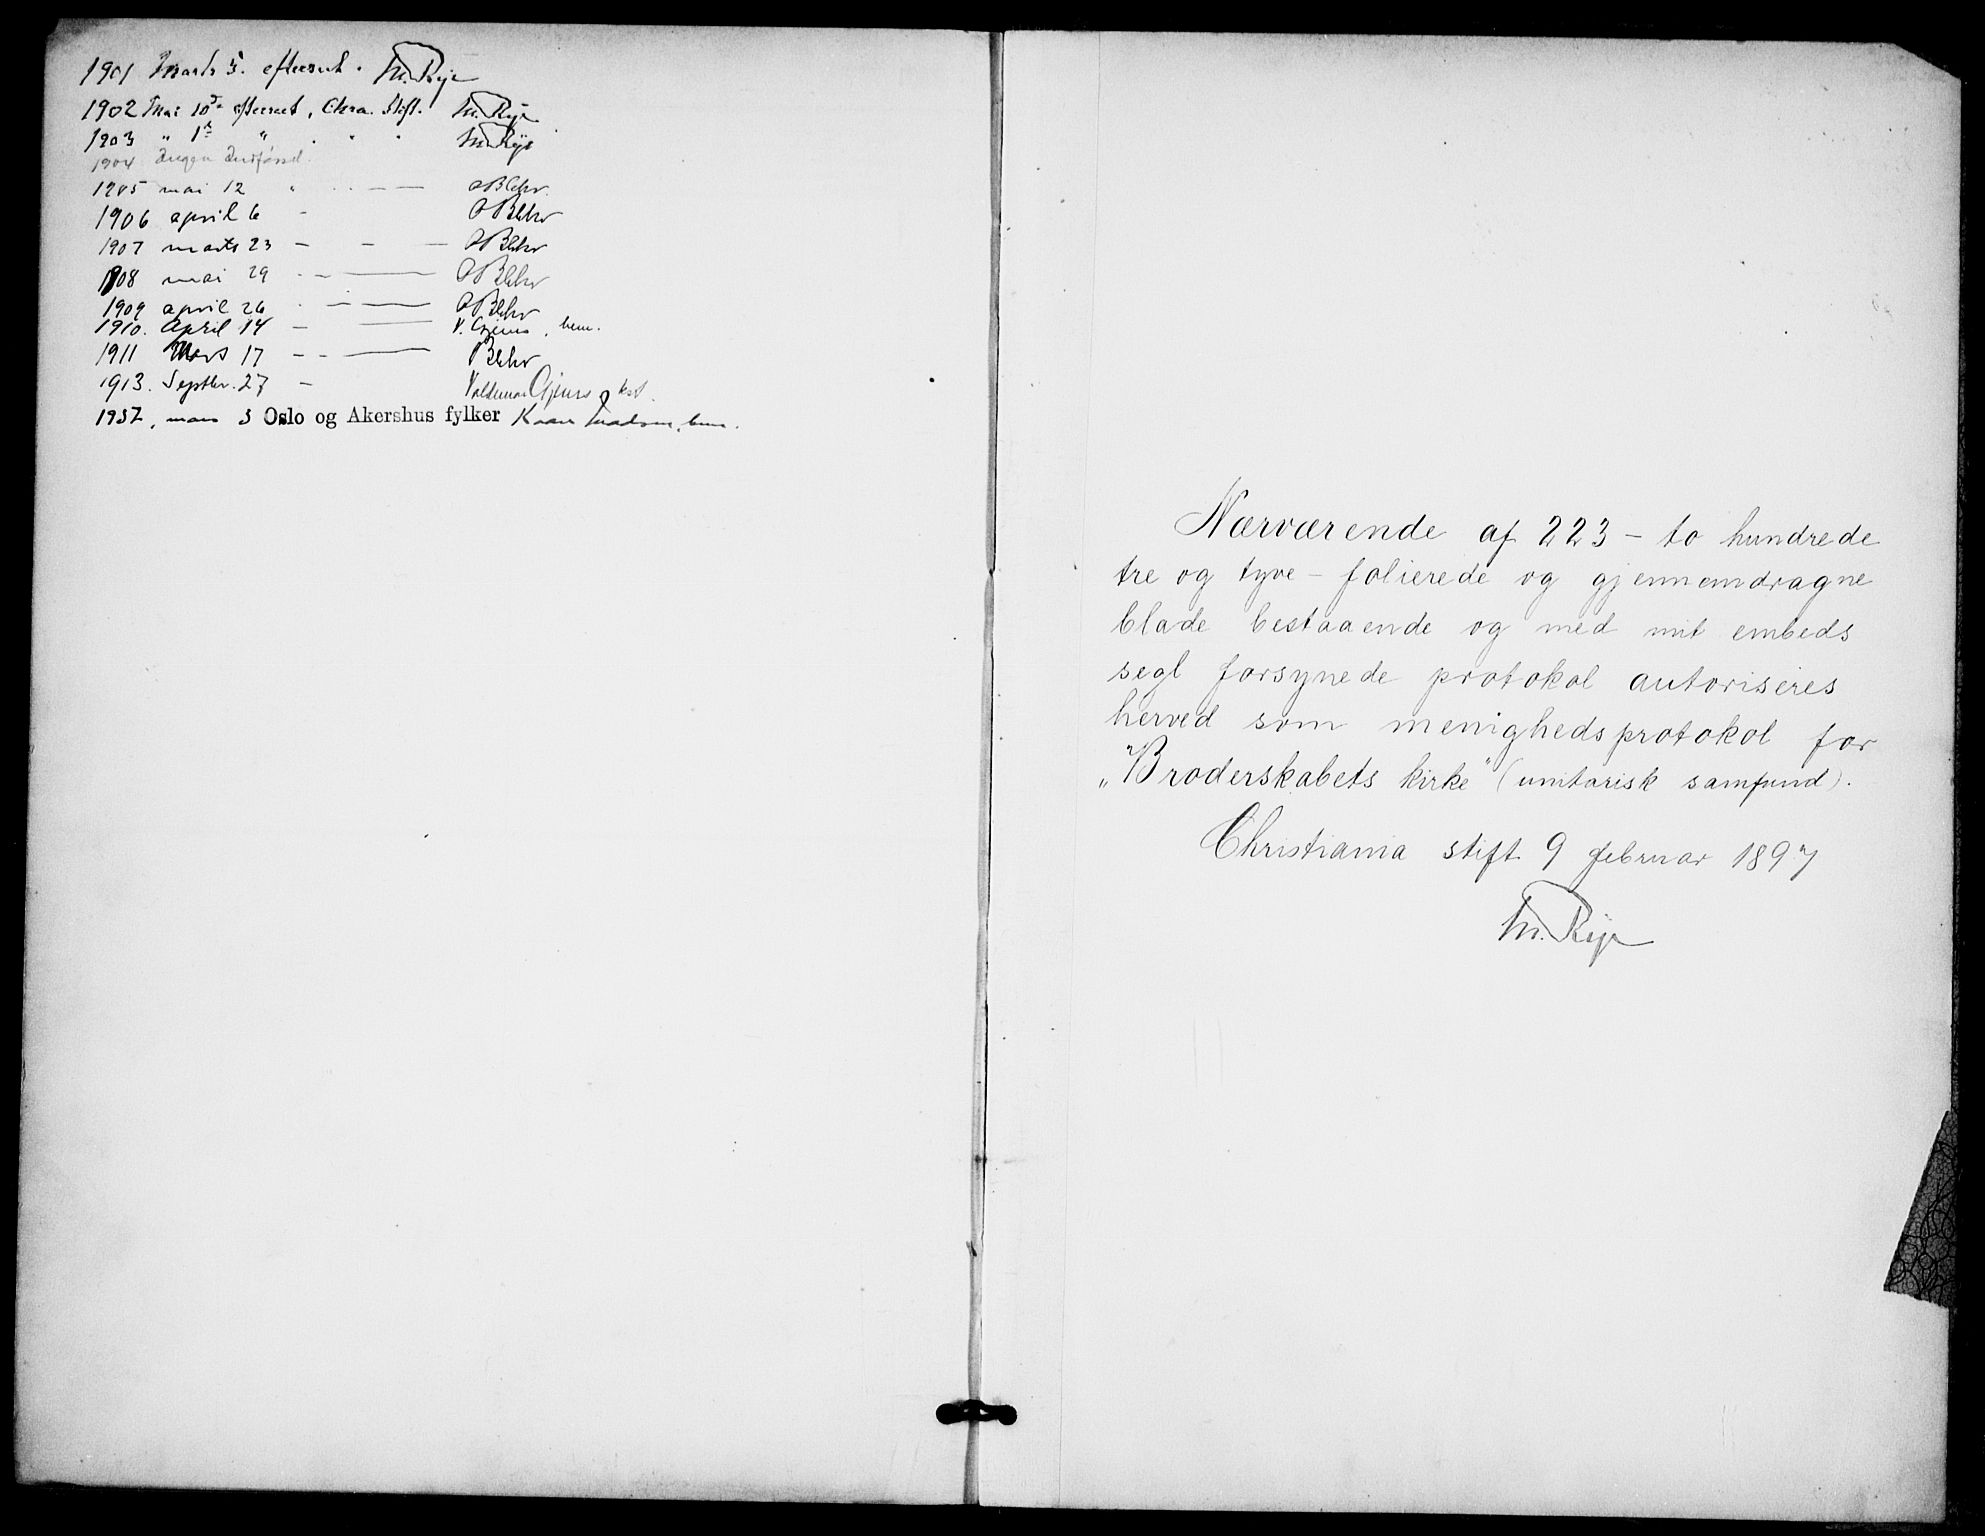 1901 Marts 5. efterseet. M. Rye
1902 Mai 10de efterseet, Chra. Stift. M. Rye
1903 " 1ste " " " M. Rye
1904 Ingen Indførsel.
1905 mai 12 " - — — O Blehr.
1906 april 6 - O Blehr
1907 marts 23 — — — O Blehr
1908 mai 29 - — — O Blehr
1909 april 26 - — — O Blehr
1910. April 14 — — V. Gjerus, bem.
1911 Mars 17 — — — Blehr
1913. Septbr. 27 — Valdemar Gjerus kst.
1937, mars 3 Oslo og Akershus fylker
Nærværende af 223 – to hundrede
tre og tyve – folierede og gjennemdragne
blade bestaaende og med mit embeds
segl forsynede protokol autoriseres
herved som menighedsprotokol for
„Broderskabets kirke" (unitarisk samfund).
Christiania stift 9 februar 1897
M. Rye